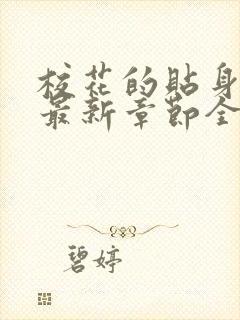 校花的貼身
最新章節全
碧婷